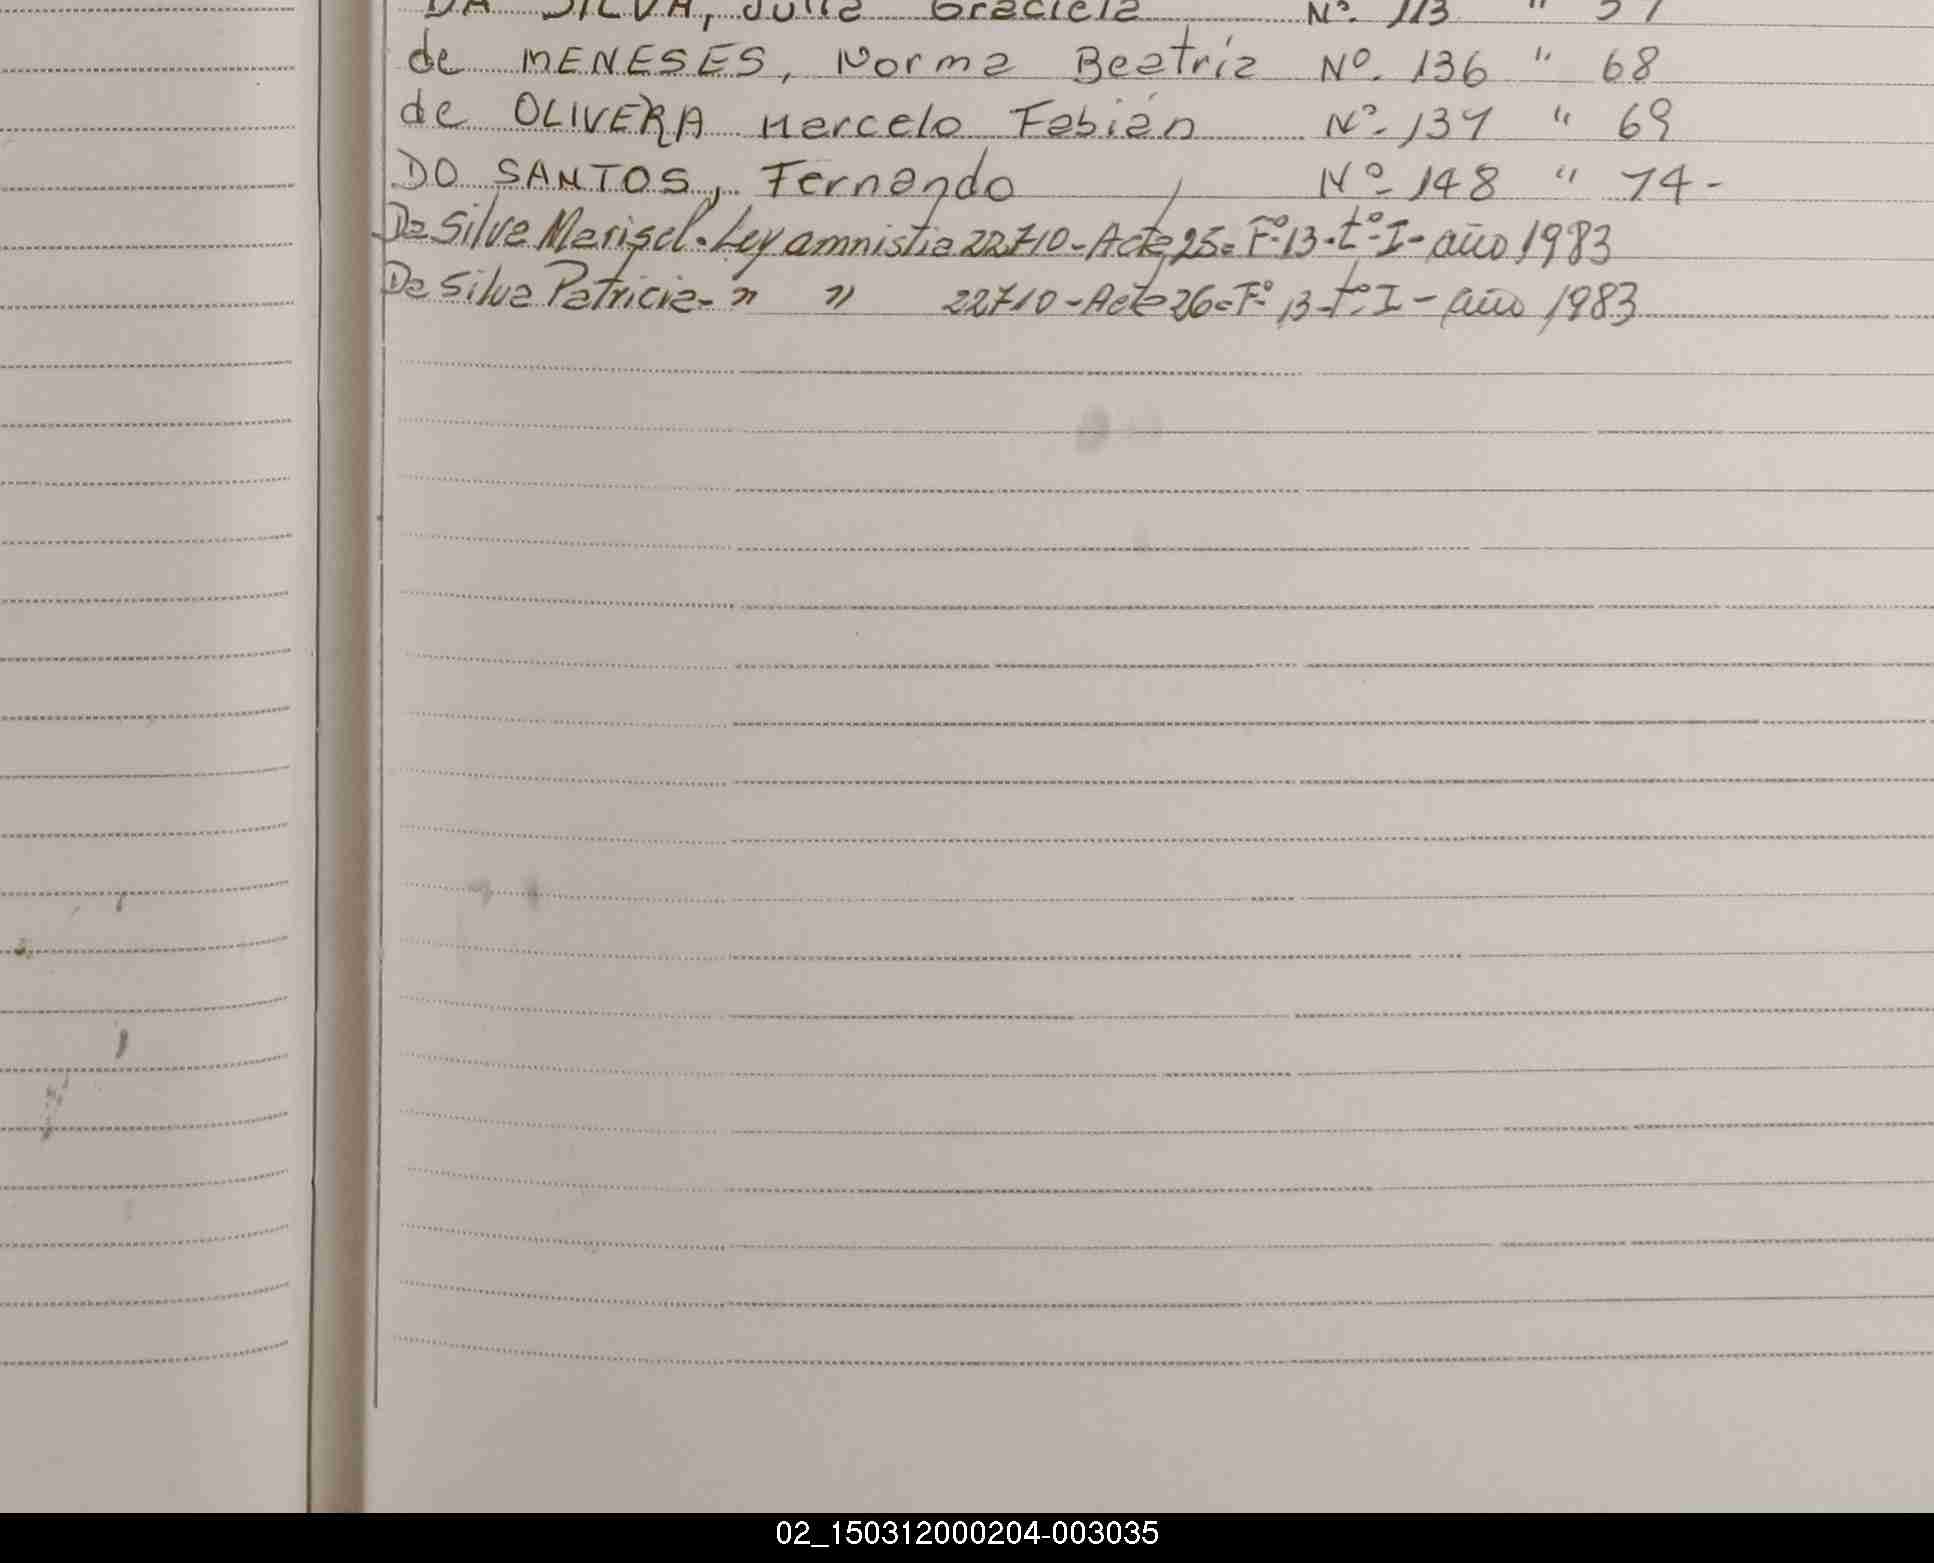 DA SILVA, Julia Graciela Nº. 113 " 57
de MENESES, Norma Beatríz Nº. 136 " 68
de OLIVERA Marcelo Fabián Nº- 137 " 69
DO SANTOS, Fernando Nº- 148 " 74-
Da Silva Marisel. Ley amnistia 22710-Acta 25= Fº-13-tº-I- año 1983
Da Silva Patricia- " " 22710-Acta 26=Fº 13-tº-I- año 1983
02_150312000204-003035